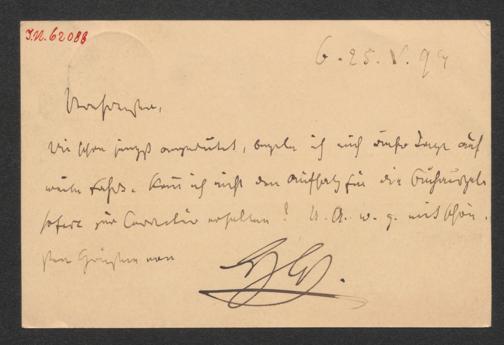 I.N. 62088
G. 25. V. 94
Verehrtester,
Wie schon jüngst angedeutet, begebe ich mich dieser Tage auf
weite Fahrt. Kann ich nicht den Aufsatz für die
sofort zur Correctur erhalten? U. A. w. g. mit schön-
sten Grüßen von